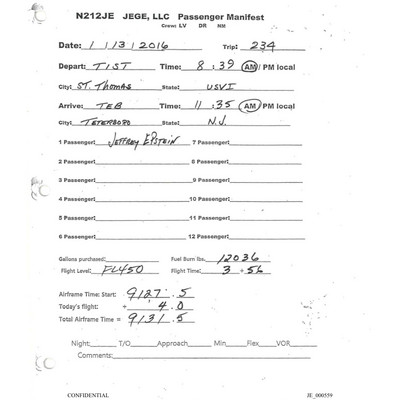 N212JE JEGE, LLC Passenger Manifest
Crew: LV DR NM
Date: 1/13/2016 Trip: 234
Depart: TIST Time: 8:39 AM/PM local
City: ST. THOMAS State: USVI
Arrive: TEB Time: 11:35 AM/PM local
City: TETERBORO State: N.J.
1 Passenger: JEFFREY EPSTEIN 7 Passenger:
2 Passenger: 8 Passenger:
3 Passenger: 9 Passenger:
4 Passenger: 10 Passenger:
5 Passenger: 11 Passenger:
6 Passenger: 12 Passenger:
Gallons purchased: Fuel Burn lbs. 12036
Flight Level: FL450 Flight Time: 3 + 56
Airframe Time: Start: 9127.5
Today's flight: + 4.0
Total Airframe Time = 9131.5
Night: T/O Approach Min Flex VOR
Comments:
CONFIDENTIAL JE_000559